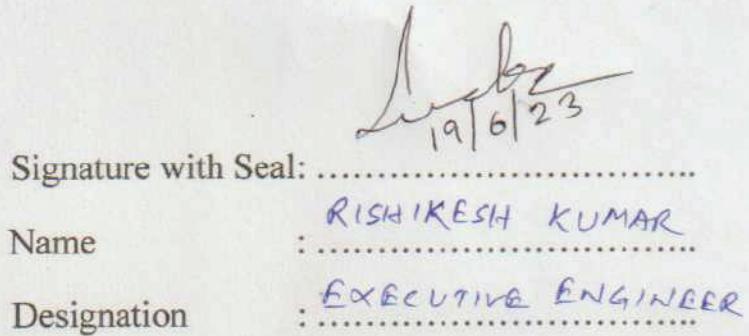 19/6/23
Signature with Seal: ....................................
Name : ....................................
RISHIKESH KUMAR
Designation : ....................................
EXECUTIVE ENGINEER